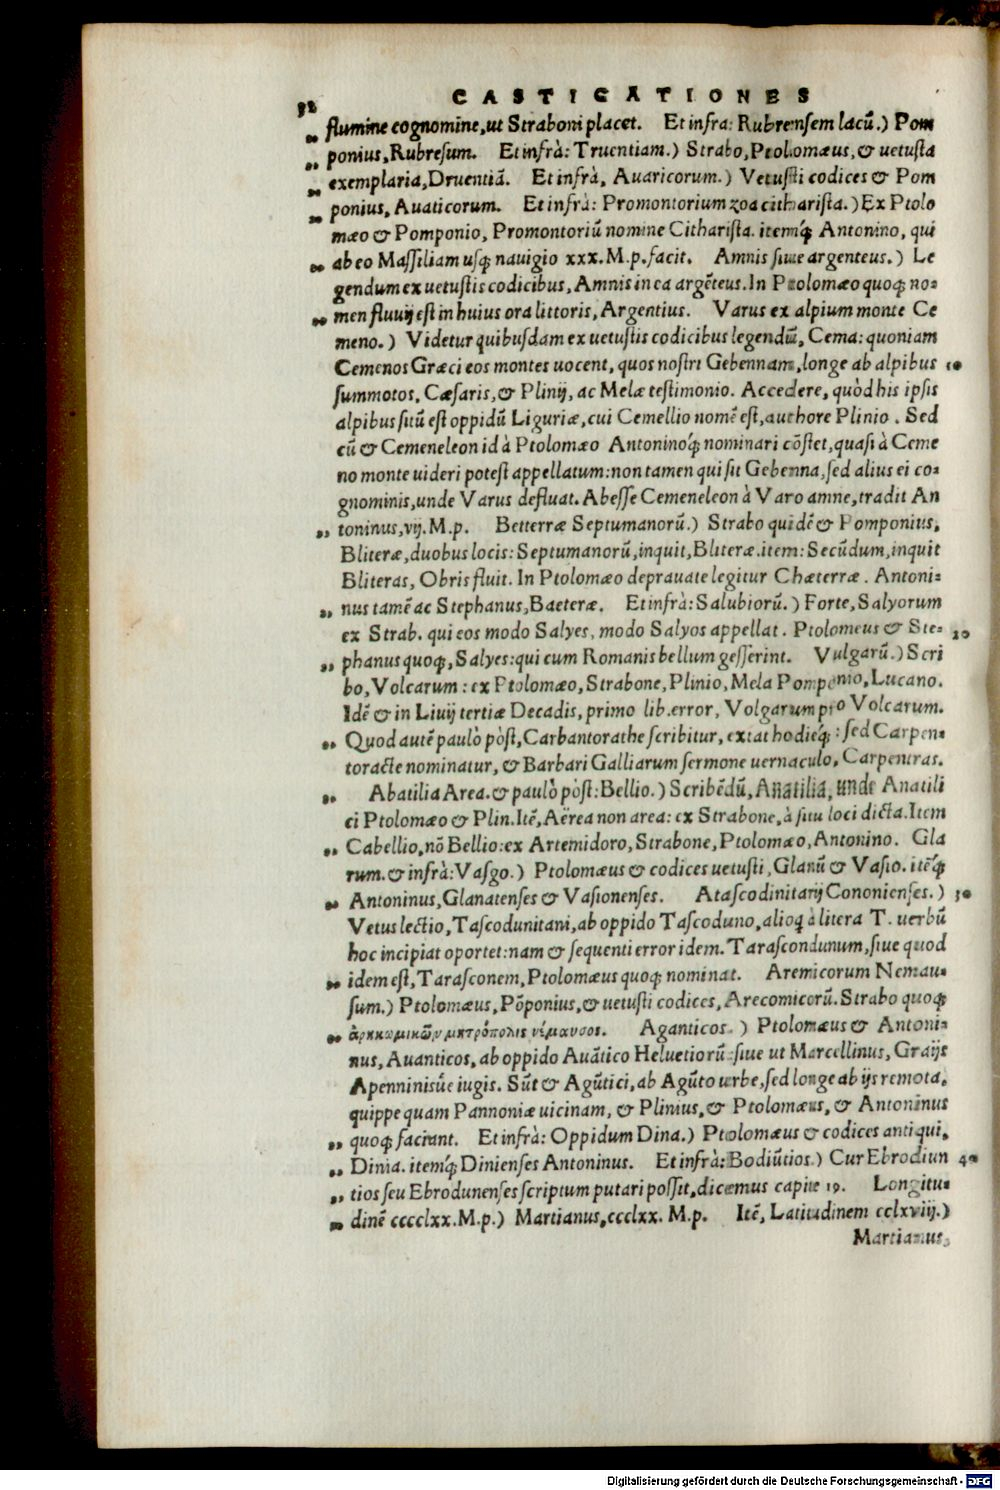 32
CASTIGATIONES
„ flumine cognomine, ut Straboni placet. Et infra: Rubrensem lacũ.) Pom
„ ponius, Rubresum. Et infrà: Truentiam.) Strabo, Ptolomæus, & uetusta
„ exemplaria, Druentiã. Et infrà, Auaricorum.) Vetusti codices & Pom
„ ponius, Auaticorum. Et infrà: Promontorium zoa citharista.) Ex Ptolo
mæo & Pomponio, Promontoriũ nomine Citharista. itemq́; Antonino, qui
„ ab eo Massiliam usq; nauigio xxx.M.p.facit. Amnis siue argenteus.) Le
gendum ex uetustis codicibus, Amnis in ea argẽteus. In Ptolomæo quoq; no-
„ men fluuij est in huius ora littoris, Argentius. Varus ex alpium monte Ce
meno.) Videtur quibusdam ex uetustis codicibus legendũ, Cema: quoniam
Cemenos Græci eos montes uocent, quos nostri Gebennam, longe ab alpibus 10
summotos, Cæsaris, & Plinij, ac Melæ testimonio. Accedere, quòd his ipsis
alpibus sitũ est oppidũ Liguriæ, cui Cemellio nomẽ est, authore Plinio. Sed
cũ & Cemeneleon id à Ptolomæo Antoninoq́; nominari cõstet, quasi à Ceme
no monte uideri potest appellatum: non tamen qui sit Gebenna, sed alius ei co-
gnominis, unde Varus defluat. Abesse Cemeneleon à Varo amne, tradit An
„ toninus, vij. M.p. Betterræ Septumanorũ.) Strabo quidẽ & Pomponius,
Bliteræ, duobus locis: Septumanorũ, inquit, Bliteræ. item: Secũdum, inquit
Bliteras, Obris fluit. In Ptolomæo deprauate legitur Chæterræ. Antoni-
„ nus tamẽ ac Stephanus, Baeteræ. Et infrà: Salubiorũ.) Forte, Salyorum
ex Strab. qui eos modo Salyes, modo Salyos appellat. Ptolomeus & Ste- 20
„ phanus quoq;, Salyes: qui cum Romanis bellum gesserint. Vulgarũ.) Scri
bo, Volcarum: ex Ptolomæo, Strabone, Plinio, Mela Pomponio, Lucano.
Idẽ & in Liuij tertiæ Decadis, primo lib. error, Volgarum pro Volcarum.
„ Quod autẽ paulò pòst, Carbantorathe scribitur, extat hodieq́;: sed Carpen-
toracte nominatur, & Barbari Galliarum sermone uernaculo, Carpentras.
„ Abatilia Area. & paulò pòst: Bellio.) Scribẽdũ, Anatilia, unde Anatili
ci Ptolomæo & Plin. Itẽ, Aërea non area: ex Strabone, à situ loci dicta. Item
„ Cabellio, nõ Bellio: ex Artemidoro, Strabone, Ptolomæo, Antonino. Gla
rum. & infrà: Vasgo.) Ptolomæus & codices uetusti, Glanũ & Vasio. itẽq́;
„ Antoninus, Glanatenses & Vasionenses. Atascodinitarij Cononienses.) 30
Vetus lectio, Tascodunitani, ab oppido Tascoduno, alioq à litera T. uerbũ
hoc incipiat oportet: nam & sequenti error idem. Tarascondunum, siue quod
„ idem est, Tarasconem, Ptolomæus quoq; nominat. Aremicorum Nemau-
sum.) Ptolomæus, Põponius, & uetusti codices, Arecomicorũ. Strabo quoq;
„ ἀρηκωμικῶν μητρόπολις νέμαυσος. Aganticos.) Ptolomæus & Antoni-
nus, Auanticos, ab oppido Auãtico Heluetiorũ: siue ut Marcellinus, Graijs
Apenninisúe iugis. Sũt & Agũtici, ab Agũto urbe, sed longe ab ijs remota,
quippe quam Pannoniæ uicinam, & Plinius, & Ptolomæus, & Antoninus
„ quoq; faciunt. Et infrà: Oppidum Dina.) Ptolomæus & codices antiqui,
„ Dinia. itemq́; Dinienses Antoninus. Et infrà: Bodiũtios.) Cur Ebrodiun 40
„ tios seu Ebrodunenses scriptum putari possit, dicemus capite 19. Longitu-
„ dinẽ cccclxx.M.p.) Martianus, ccclxx. M.p. Itẽ, Latitudinem cclxviij.)
Martianus,
Digitalisierung gefördert durch die Deutsche Forschungsgemeinschaft - DFG